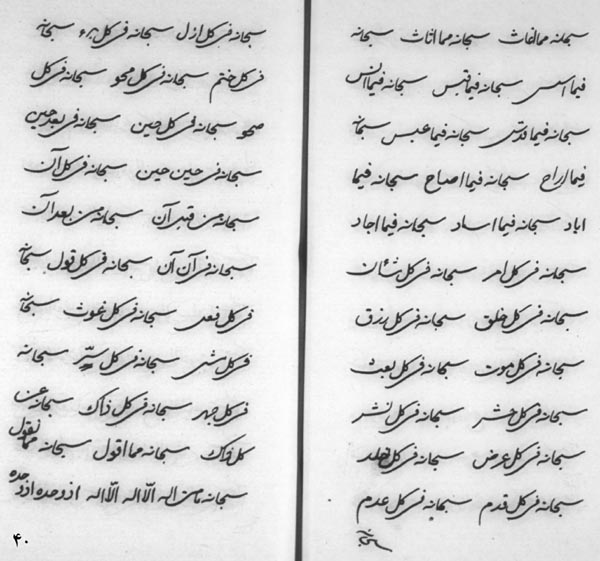 سبحانه مما اغاث سبحانه مما اثاث سبحانه
فیما اسس سبحانه فیما قبس سبحانه فیما انس
سبحانه فیما قدس سبحانه فیما عبس سبحانه
فیما اراح سبحانه فیما اصاح سبحانه فیما
اباد سبحانه فیما اساد سبحانه فیما اجاد
سبحانه فی کل امر سبحانه فی کل شان
سبحانه فی کل خلق سبحانه فی کل رزق
سبحانه فی کل موت سبحانه فی کل بعث
سبحانه فی کل حشر سبحانه فی کل نشر
سبحانه فی کل عرض سبحانه فی کل
سبحانه فی کل قدم سبحانه فی کل عدم
سبحانه
سبحانه فی کل ازل سبحانه فی کل بدء سبحانه
فی کل ختم سبحانه فی کل محو سبحانه فی کل
صحو سبحانه فی کل حین سبحانه فی بعد حین
سبحانه فی حین حین سبحانه فی کل آن
سبحانه من قبل آن سبحانه من بعد آن
سبحانه فی آن آن سبحانه فی کل قول سبحانه
فی کل فعل سبحانه فی کل غوث سبحانه
فی کل شی سبحانه فی کل سرّ سبحانه
فی کل جهر سبحانه فی کل ذاک سبحانه عن
کل ذاک سبحانه مما اقول سبحانه مما نقول
سبحانه ما من اله الّا اله الّا اله
۴۰